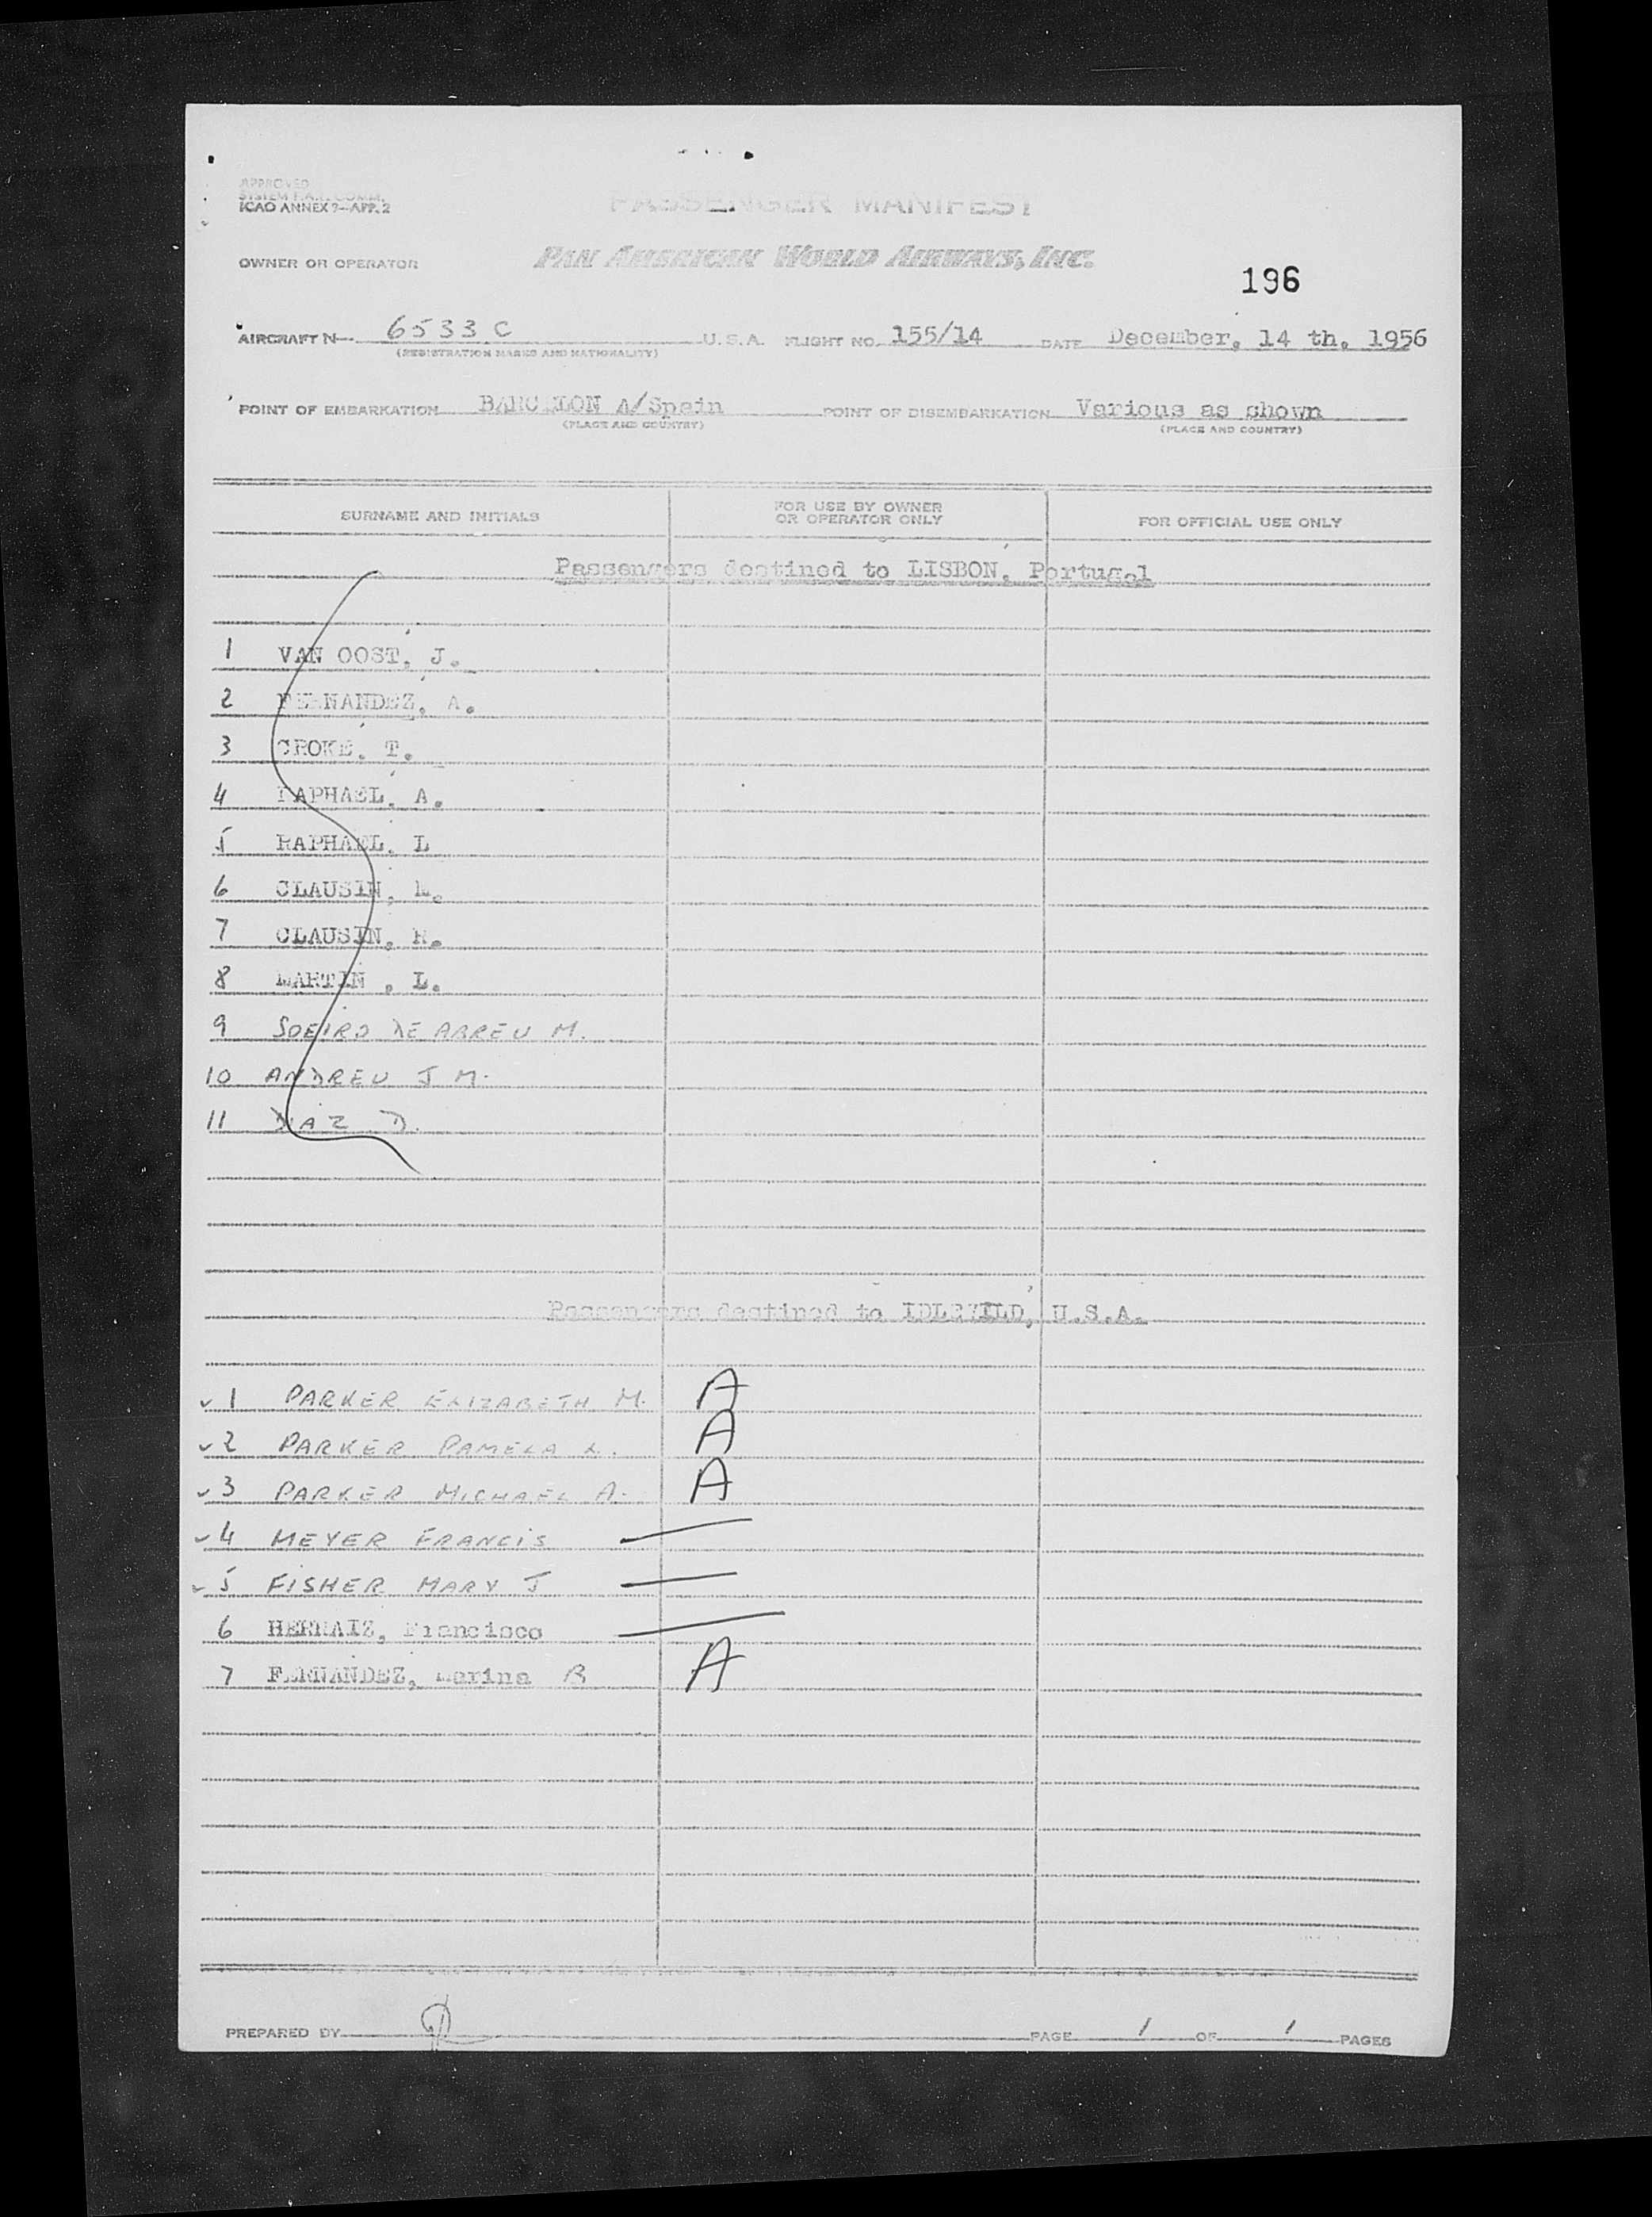 APPROVED
SYSTEM F.A.L. COMM.
ICAO ANNEX 9—APP. 2
PASSENGER MANIFEST
OWNER OR OPERATOR PAN AMERICAN WORLD AIRWAYS, INC.
196
AIRCRAFT N— 6533 C U.S.A. FLIGHT NO. 155/14 DATE December, 14 th. 1956
(REGISTRATION MARKS AND NATIONALITY)
POINT OF EMBARKATION BARCELON A/Spain POINT OF DISEMBARKATION Various as shown
(PLACE AND COUNTRY) (PLACE AND COUNTRY)
SURNAME AND INITIALS FOR USE BY OWNER OR OPERATOR ONLY FOR OFFICIAL USE ONLY
Passengers destined to LISBON, Portugal
1 VAN OOST, J.
2 FERNANDEZ, A.
3 CROKE, T.
4 RAPHAEL, A.
5 RAPHAEL, L
6 CLAUSIN, M.
7 CLAUSIN, R.
8 MARTIN , L.
9 SOEIRO DE ABREU M.
10 ANDREU J M.
11 DIAZ D.
Passengers destined to IDLEWILD, U.S.A.
✓ 1 PARKER ELIZABETH M. A
✓ 2 PARKER PAMELA L. A
✓ 3 PARKER MICHAEL A. A
✓ 4 MEYER FRANCIS —
✓ 5 FISHER MARY J —
6 HERNAIZ, Francisco —
7 FERNANDEZ, Marina B A
PREPARED BY PAGE 1 OF 1 PAGES